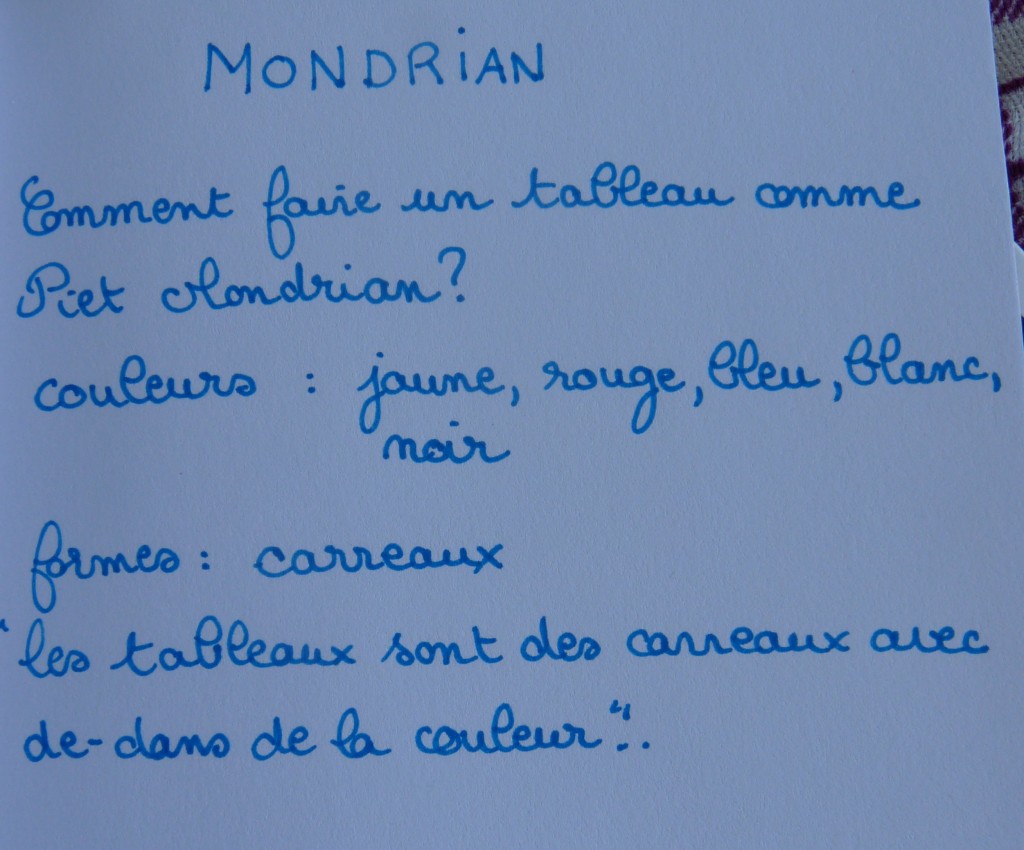 MONDRiAN
Comment faire un tableau comme
Piet Mondrian?
couleurs : jaune, rouge, bleu, blanc,
noir
formes : carreaux
"les tableaux sont des carreaux avec
de-dans de la couleur"..